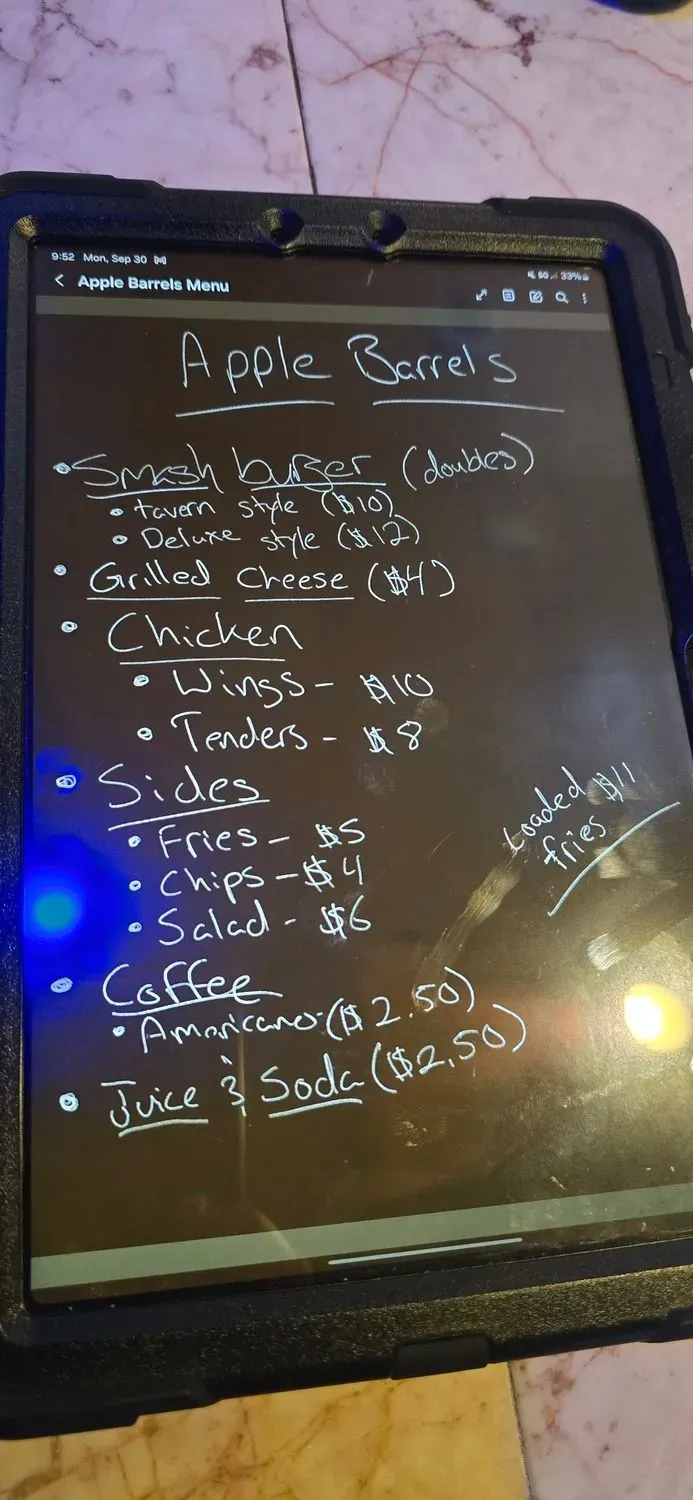 9:52 Mon, Sep 30
5G 33%
< Apple Barrels Menu
Apple Barrels
• Smash burger (doubles)
• tavern style ($10)
• Deluxe style ($12)
• Grilled Cheese ($4)
• Chicken
• Wings - $10
• Tenders - $8
• Sides
• Fries - $5
• Chips - $4
• Salad - $6
Loaded $11
fries
• Coffee
• Americano: ($2.50)
• Juice & Soda ($2.50)